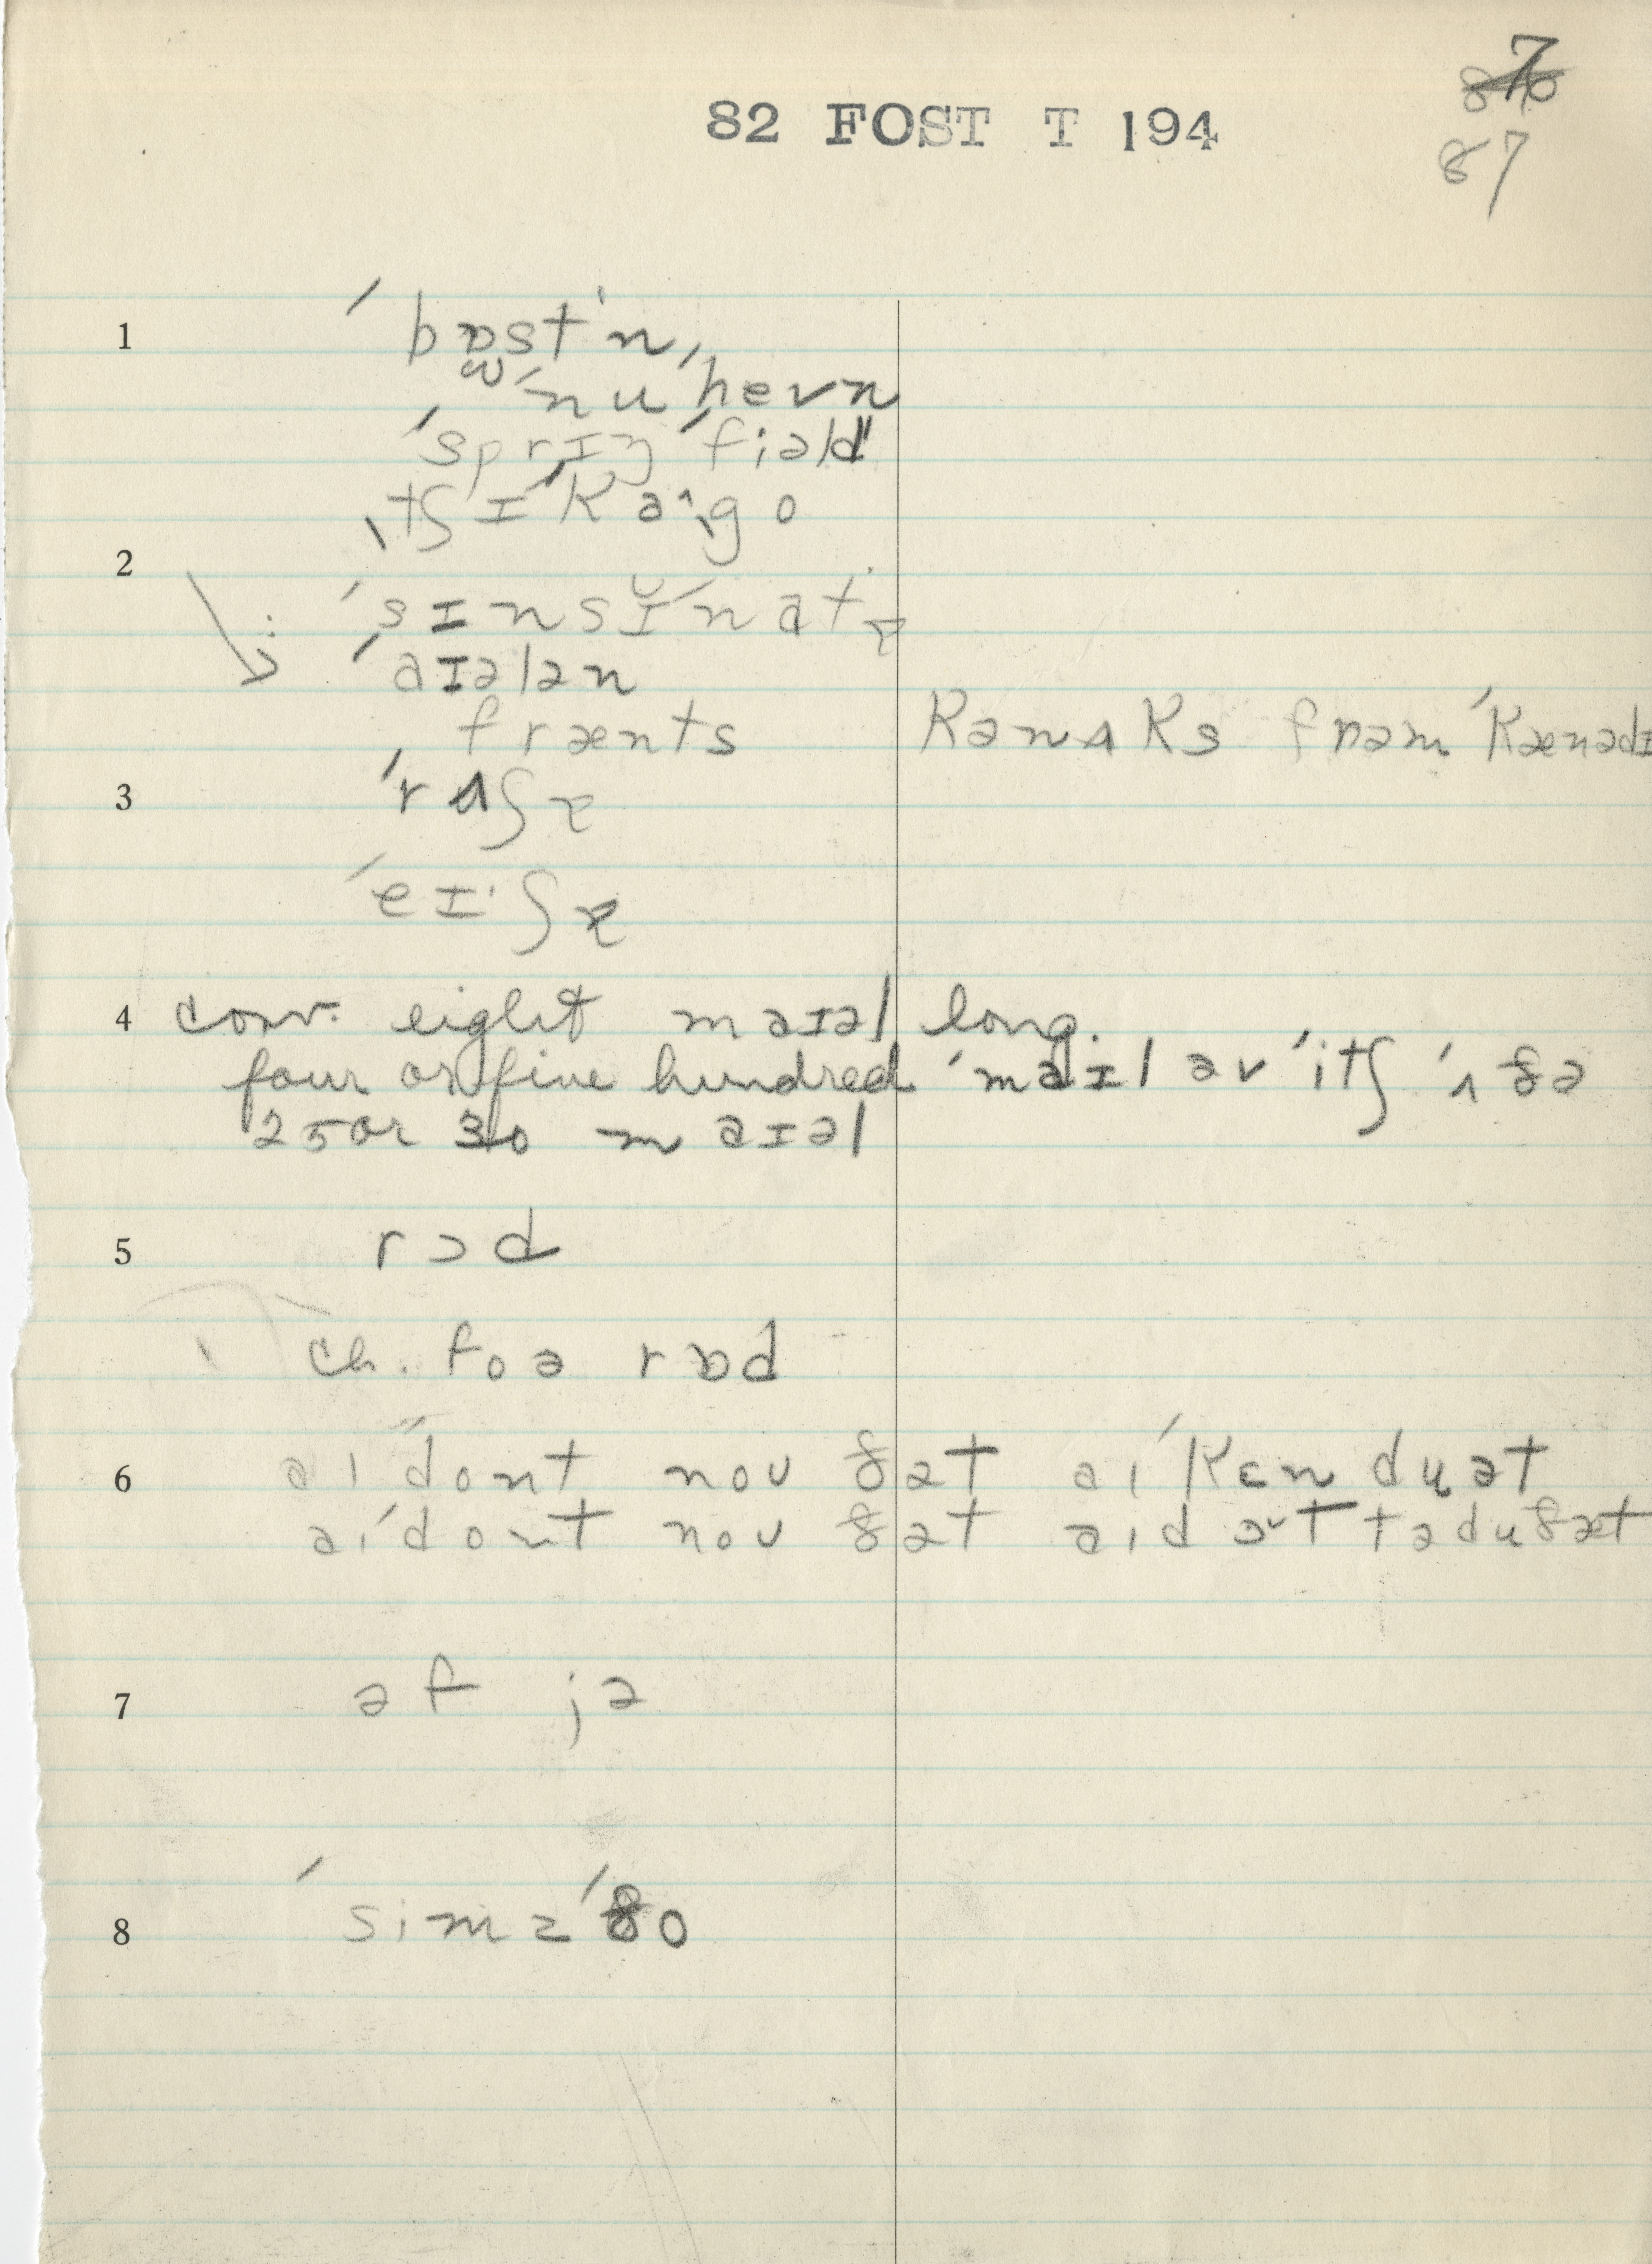 7
82 FOST T 194
87
1 ˈbɒstˈn,
ˈnuˈhevn
ˈsprɪŋˈfiəld
ˌtʃɪˈkaˑˌgo
2 ˈsɪnsɪˈnatɪ
ˈaɪələn
frænts kənʌks frɒm ˈkænədɪ
3 ˈrʌʃɪ
ˈeɪˑʃɪ
4 conv. eight maɪəl long.
four or five hundred ˈmaɪl əv ˈitʃ ˈʌðə
25 or 30 maɪəl
5 rɔd
ch. foə rɒd
6 aɪ ˈdont noʊ ðət aɪ ˈkɛn du ət
aɪ ˈdont noʊ ðət aɪd ɔt tə du ðæt
7 əf jə
8 ˈsimz ˈðo